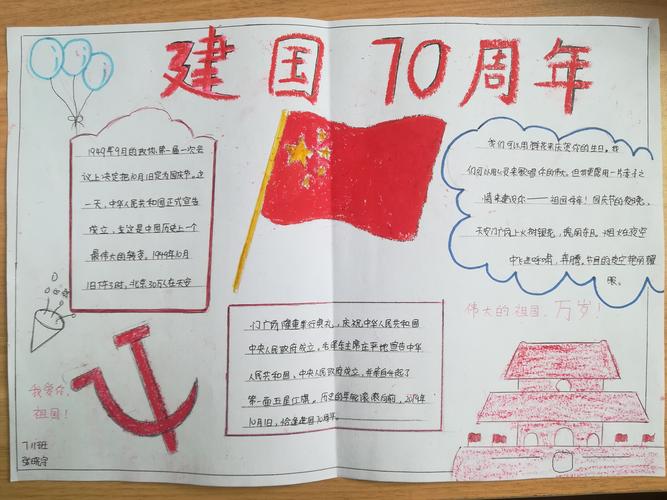 建国70周年
1949年9月的政协第一届一次会
议上决定把10月1日定为国庆节。这
一天,中华人民共和国正式宣告
成立,
这是中国历史上一个
最伟大的转变。1949年10月
1日下午3时,北京30万人在天安
门广场隆重举行典礼,庆祝中华人民共和国
中央人民政府成立。毛泽东主席庄严地宣告中华
人民共和国、中央人民政府成立,并亲自升起了
第一面五星红旗。历史的车轮滚滚向前,2019年
10月1日,恰逢建国70周年。
我们可以用鲜花来庆贺你的生日。我
们可以用
来歌唱你的伟大。但我更愿用一片赤子之
情来
你——祖国母亲!国庆节的夜晚,
天安门广场上火树银花,
烟火在夜空
中飞速呼啸,奔腾,节日的夜空艳丽耀
眼。
伟大的祖国,万岁!
我爱你,
祖国!
711班